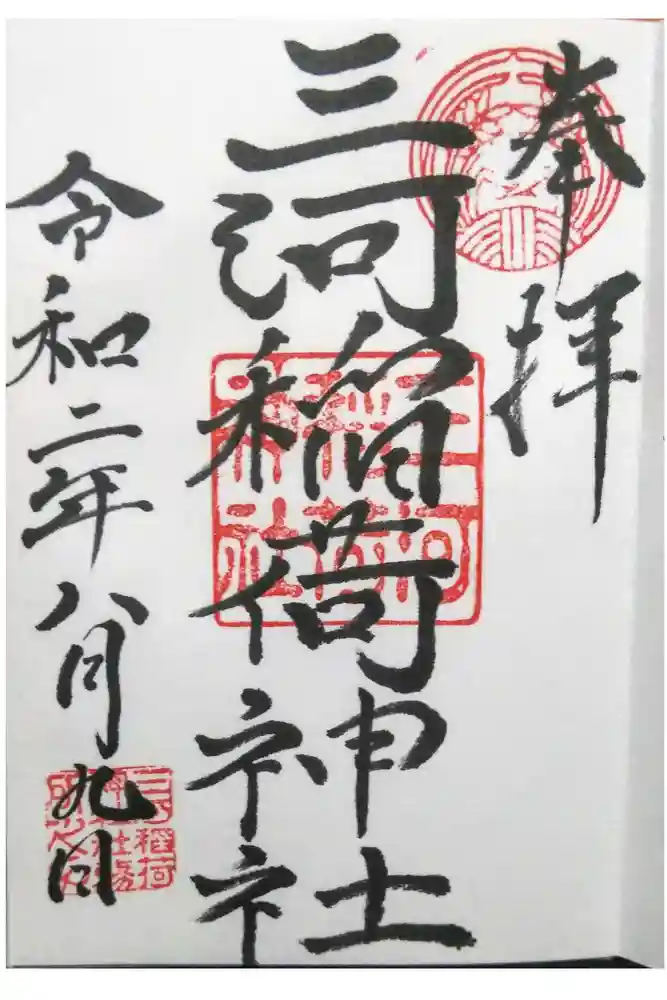 奉拝
三河稲荷神社
令和二年八月九日
三河
稲荷
神社
三河稲荷
神社社務